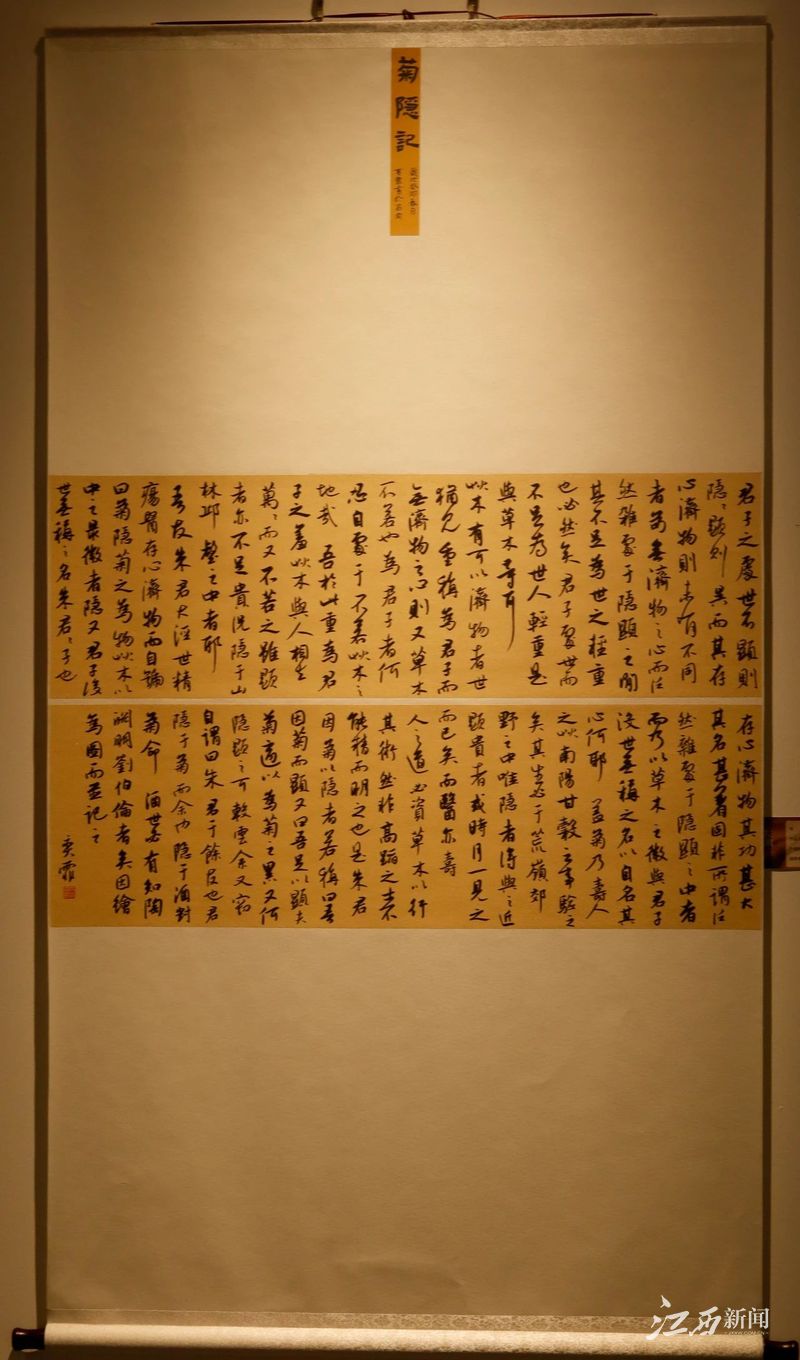 菊隱記
歲次癸卯春日
君子之處世不顯則
隱〻顯則異而其存
心濟物則未有不同
者苟無濟物之心而泛
然雜處于隱顯之間
其不足為世之輕重
也必然矣君子處世而
不足為世人輕重是
與草木等耳
艸木有可以濟物者世
猶見重稱為君子而
無濟物之心則又草木
不若也為君子者何
忍自處于不若艸木之
地哉吾於此重為君
子之羞艸木與人相去
萬〻而又不若之雖顯
者亦不足貴況隱于山
林邱壑之中者耶
吾友朱君大涇世精
瘍醫存心濟物而自號
曰菊隱菊之為物艸木以
中之最微者隱又君子沒
世無稱之名朱君〻子也
存心濟物其功甚大
其名甚著固非所謂泛
然雜處于隱顯之中者
而乃以草木之微與君子
沒世無稱之名以自名其
心何耶蓋菊乃壽人
之艸南陽甘穀之事驗之
矣其生必于荒嶺郊
野之中唯隱者得與之近
顯貴者或時月一見之
而已矣而醫亦壽
人之道必資草木以行
其術然非高蹈之士不
能精而明之也是朱君
因菊以隱者若稱曰吾
因菊而顯又曰吾足以顯夫
菊適以為菊之累又何
隱顯之可較雲余又竊
自謂曰朱君于餘友也君
隱于菊而余也隱于酒對
菊命酒世必有知陶
淵明劉伯倫者矣因繪
為圖而並記之
江西新闻